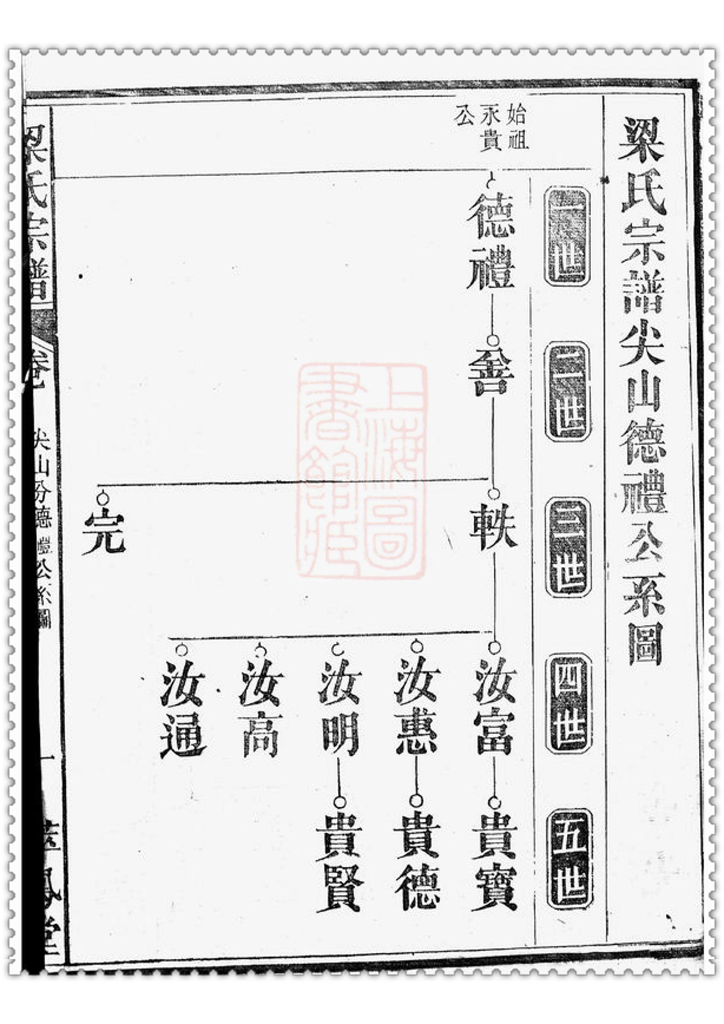 梁氏宗譜尖山德禮公系圖
一世
二世
三世
四世
五世
始祖
永貴
公
德禮
善
軼
完
汝富
汝惠
汝明
汝高
汝通
貴寶
貴德
貴賢
梁氏宗譜
卷
尖山分德禮公系圖
一
鳳堂
上海圖
書館藏